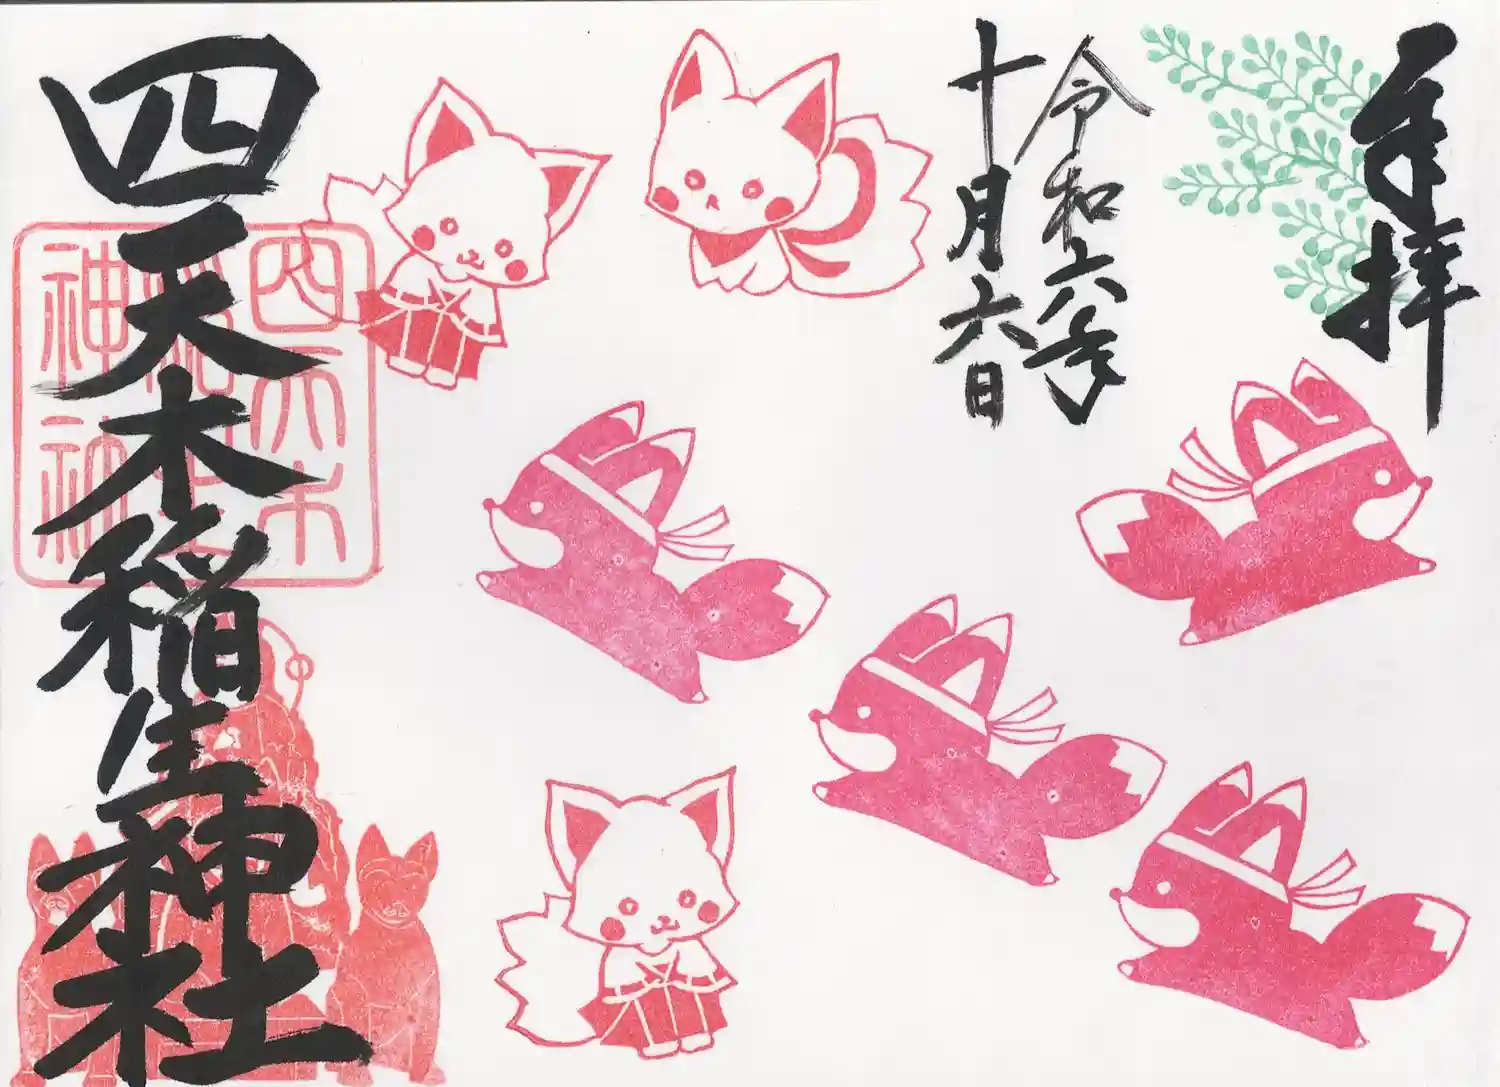 奉拝
令和六年
十月六日
四天木稲生神社
四天木
稲生
神社